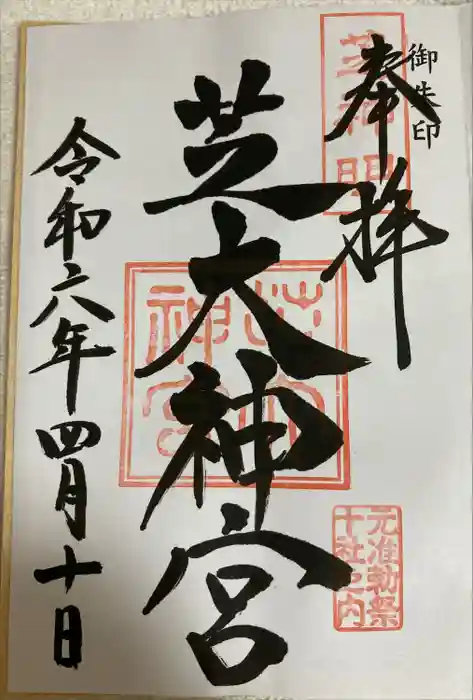 御朱印
奉拝
芝神明
芝大神宮
芝大神宮
元准勅祭
十社之内
令和六年四月十日